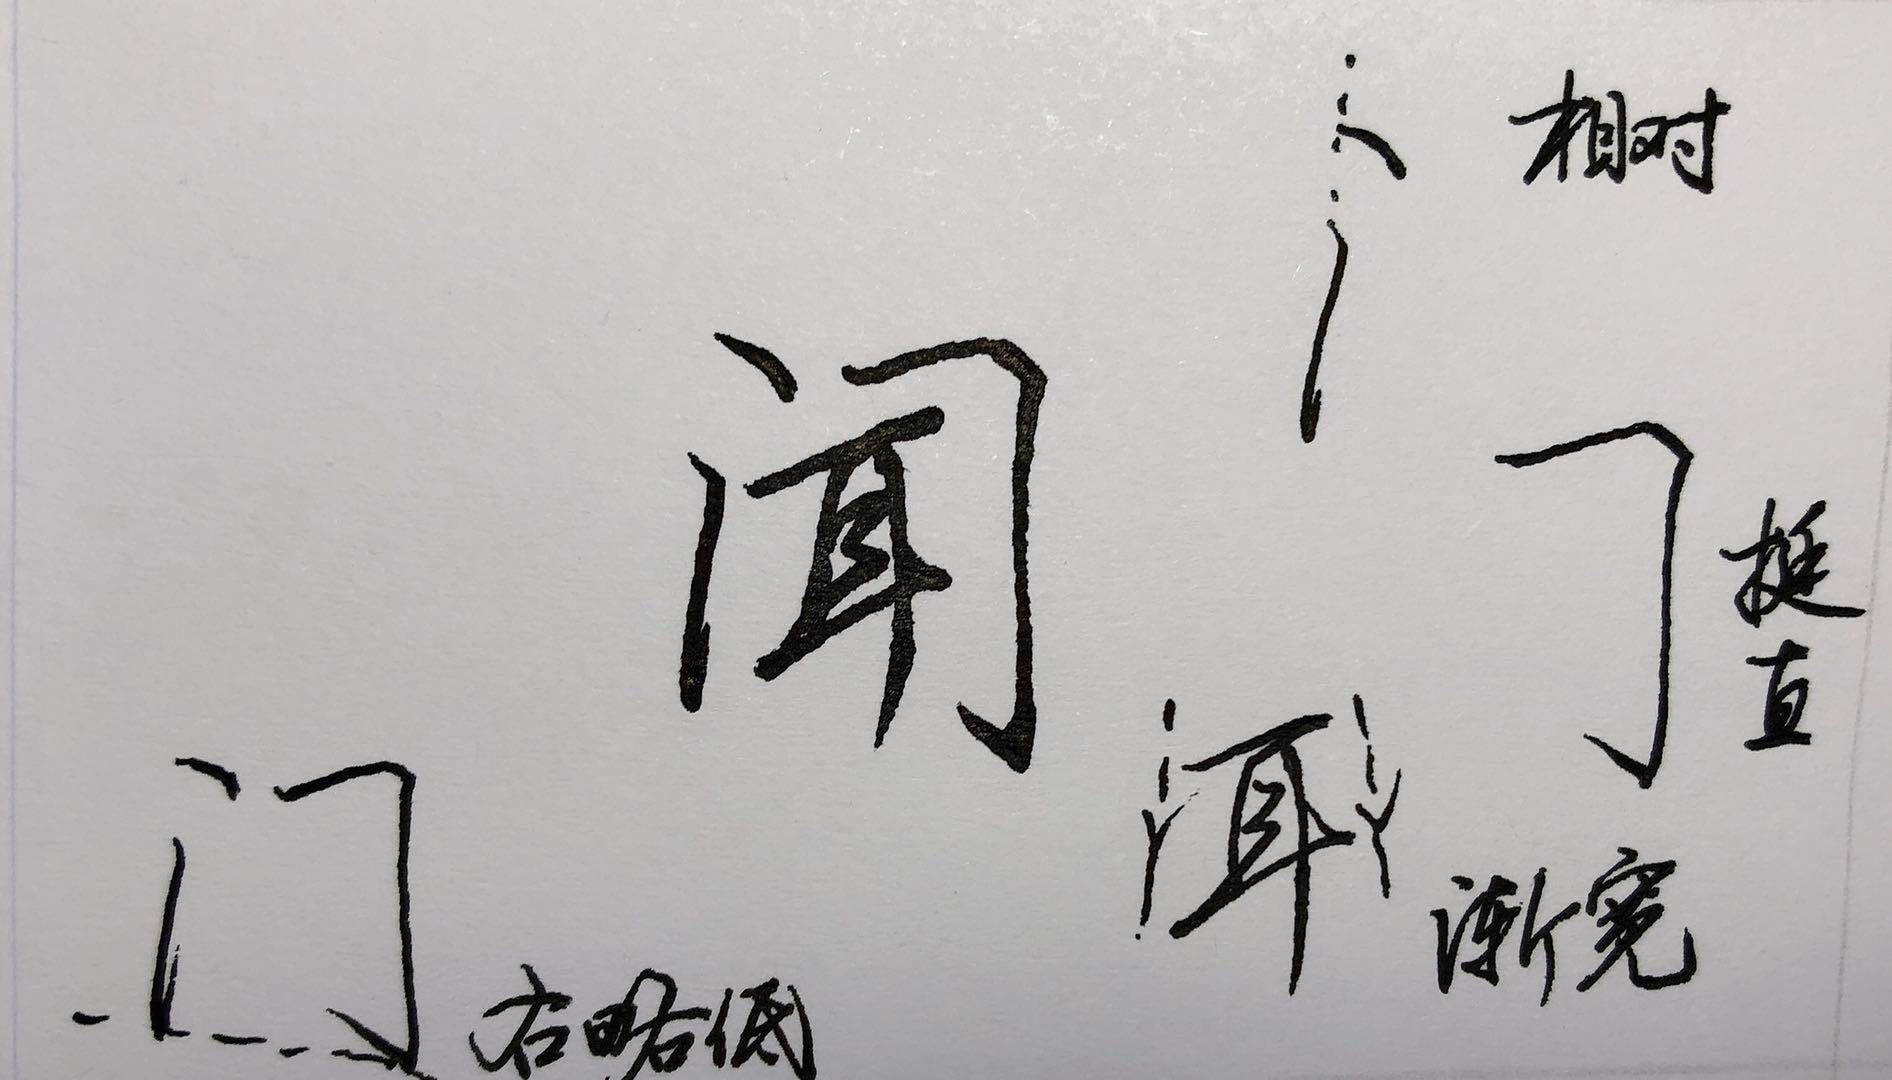 相对
闻
挺
直
耳
渐宽
门
右略低